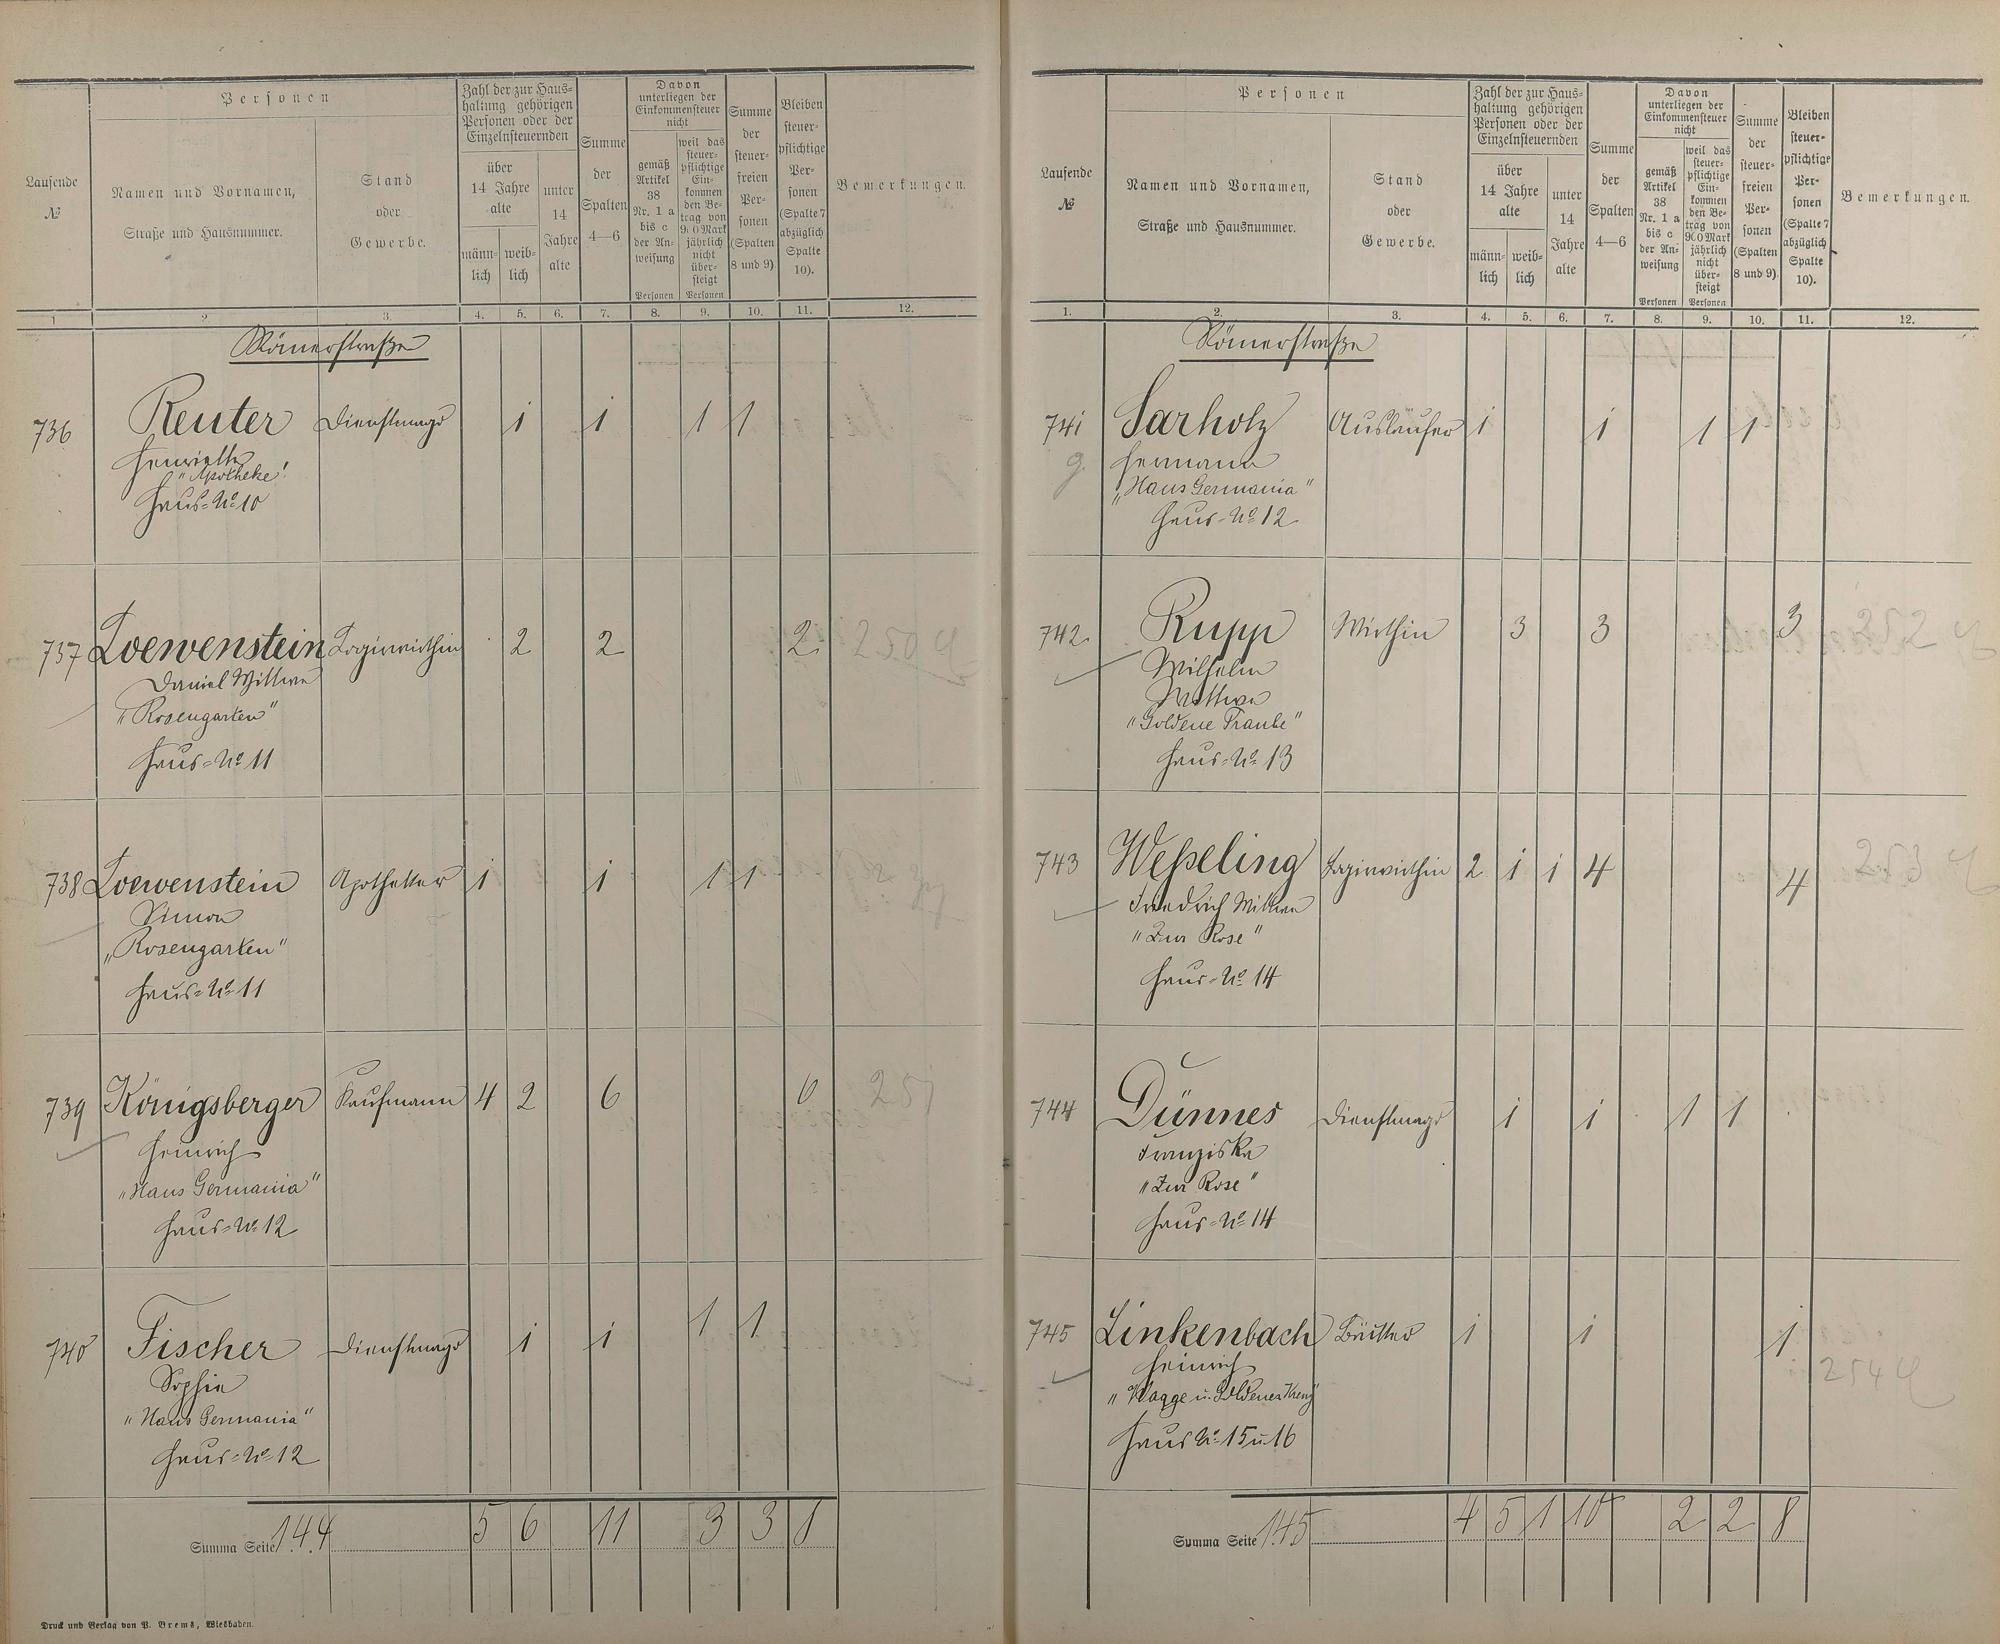 Laufende
№
Personen
Namen und Vornamen,
Straße und Hausnummer.
Stand
oder
Gewerbe.
Zahl der zur Haus-
haltung gehörigen
Personen oder der
Einzelnsteuernden
über
14 Jahre
alte
männ-
lich
weib-
lich
unter
14
Jahre
alte
Summe
der
Spalten
4—6
Davon
unterliegen der
Einkommensteuer
nicht
gemäß
Artikel
38
Nr. 1 a
bis c
der An-
weisung
Personen
weil das
steuer-
pflichtige
Ein-
kommen
den Be-
trag von
900 Mark
jährlich
nicht
über-
steigt
Personen
Summe
der
steuer-
freien
Per-
sonen
(Spalten
8 und 9)
Bleiben
steuer-
pflichtige
Per-
sonen
(Spalte 7
abzüglich
Spalte
10).
Bemerkungen.
1 2. 3. 4. 5. 6. 7. 8. 9. 10. 11. 12.
Römerstraße
736 Reuter Dienstmagd 1 1 1 1
Henriette
"Apotheke"
Haus-No 10
737 Loewenstein Logirwirthin 2 2 2 250
Daniel Wittwe
"Rosengarten"
Haus-No 11
738 Loewenstein Apotheker 1 1 1 1
Simon
"Rosengarten"
Haus-No 11
739 Königsberger Kaufmann 4 2 6 6 251
Heinrich
"Haus Germania"
Haus-No 12
740 Fischer Dienstmagd 1 1 1 1
Sophie
"Haus Germania"
Haus-No 12
Summa Seite 144 5 6 11 3 3 8
Druck und Verlag von P. Brems, Wiesbaden.
Laufende
№
Personen
Namen und Vornamen,
Straße und Hausnummer.
Stand
oder
Gewerbe.
Zahl der zur Haus-
haltung gehörigen
Personen oder der
Einzelnsteuernden
über
14 Jahre
alte
männ-
lich
weib-
lich
unter
14
Jahre
alte
Summe
der
Spalten
4—6
Davon
unterliegen der
Einkommensteuer
nicht
gemäß
Artikel
38
Nr. 1 a
bis c
der An-
weisung
Personen
weil das
steuer-
pflichtige
Ein-
kommen
den Be-
trag von
900 Mark
jährlich
nicht
über-
steigt
Personen
Summe
der
steuer-
freien
Per-
sonen
(Spalten
8 und 9)
Bleiben
steuer-
pflichtige
Per-
sonen
(Spalte 7
abzüglich
Spalte
10).
Bemerkungen.
1. 2. 3. 4. 5. 6. 7. 8. 9. 10. 11. 12.
Römerstraße
741 Sarholz Ausläufer 1 1 1 1
g. Hermann
"Haus Germania"
Haus-No 12
742 Rupp Wirthin 3 3 3 252
Wilhelm
Wittwe
"Goldene Traube"
Haus-No 13
743 Weßeling Logirwirthin 2 1 1 4 4 253
Friedrich Wittwe
"Zur Rose"
Haus-No 14
744 Dünnes Dienstmagd 1 1 1 1
Franziska
"Zur Rose"
Haus-No 14
745 Linkenbach 1 1 1
Heinrich 254
u. Goldenes Kreuz"
Haus No 15 u. 16
Summa Seite 145 4 5 1 10 2 2 8